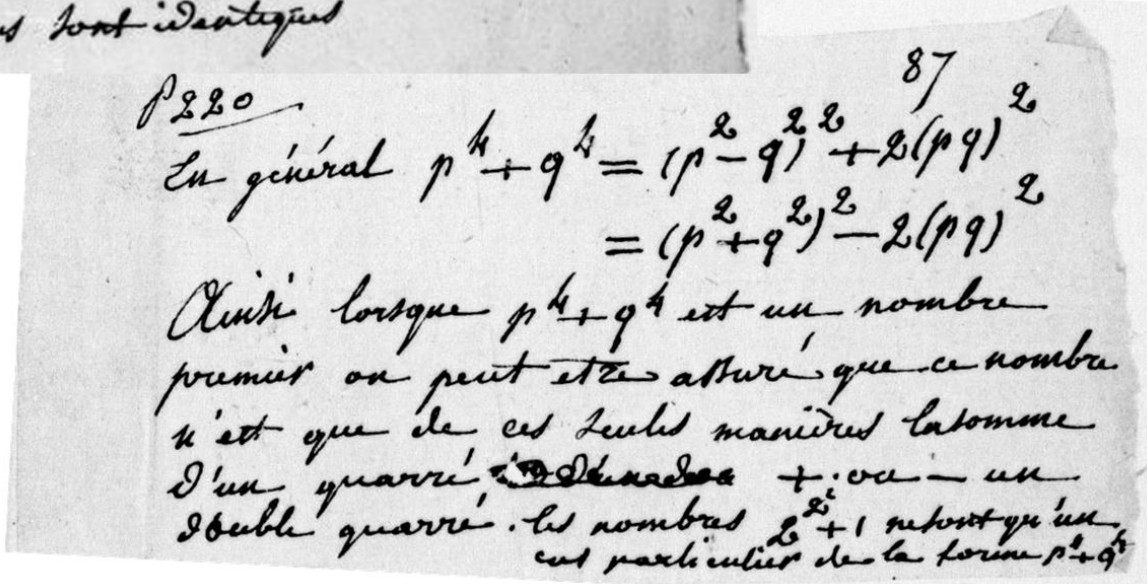 s sont identiques
87
P 220
En général p⁴ + q⁴ = (p² - q²)² + 2(pq)²
= (p² + q²)² - 2(pq)²
Ainsi lorsque p⁴ + q⁴ est un nombre
premier on peut etre assuré que ce nombre
n'est que de ces seules manières la somme
d'un quarré + ou - un
double quarré. les nombres 2^2^i + 1 ne sont qu'un
cas particulier de la forme p⁴ + q⁴